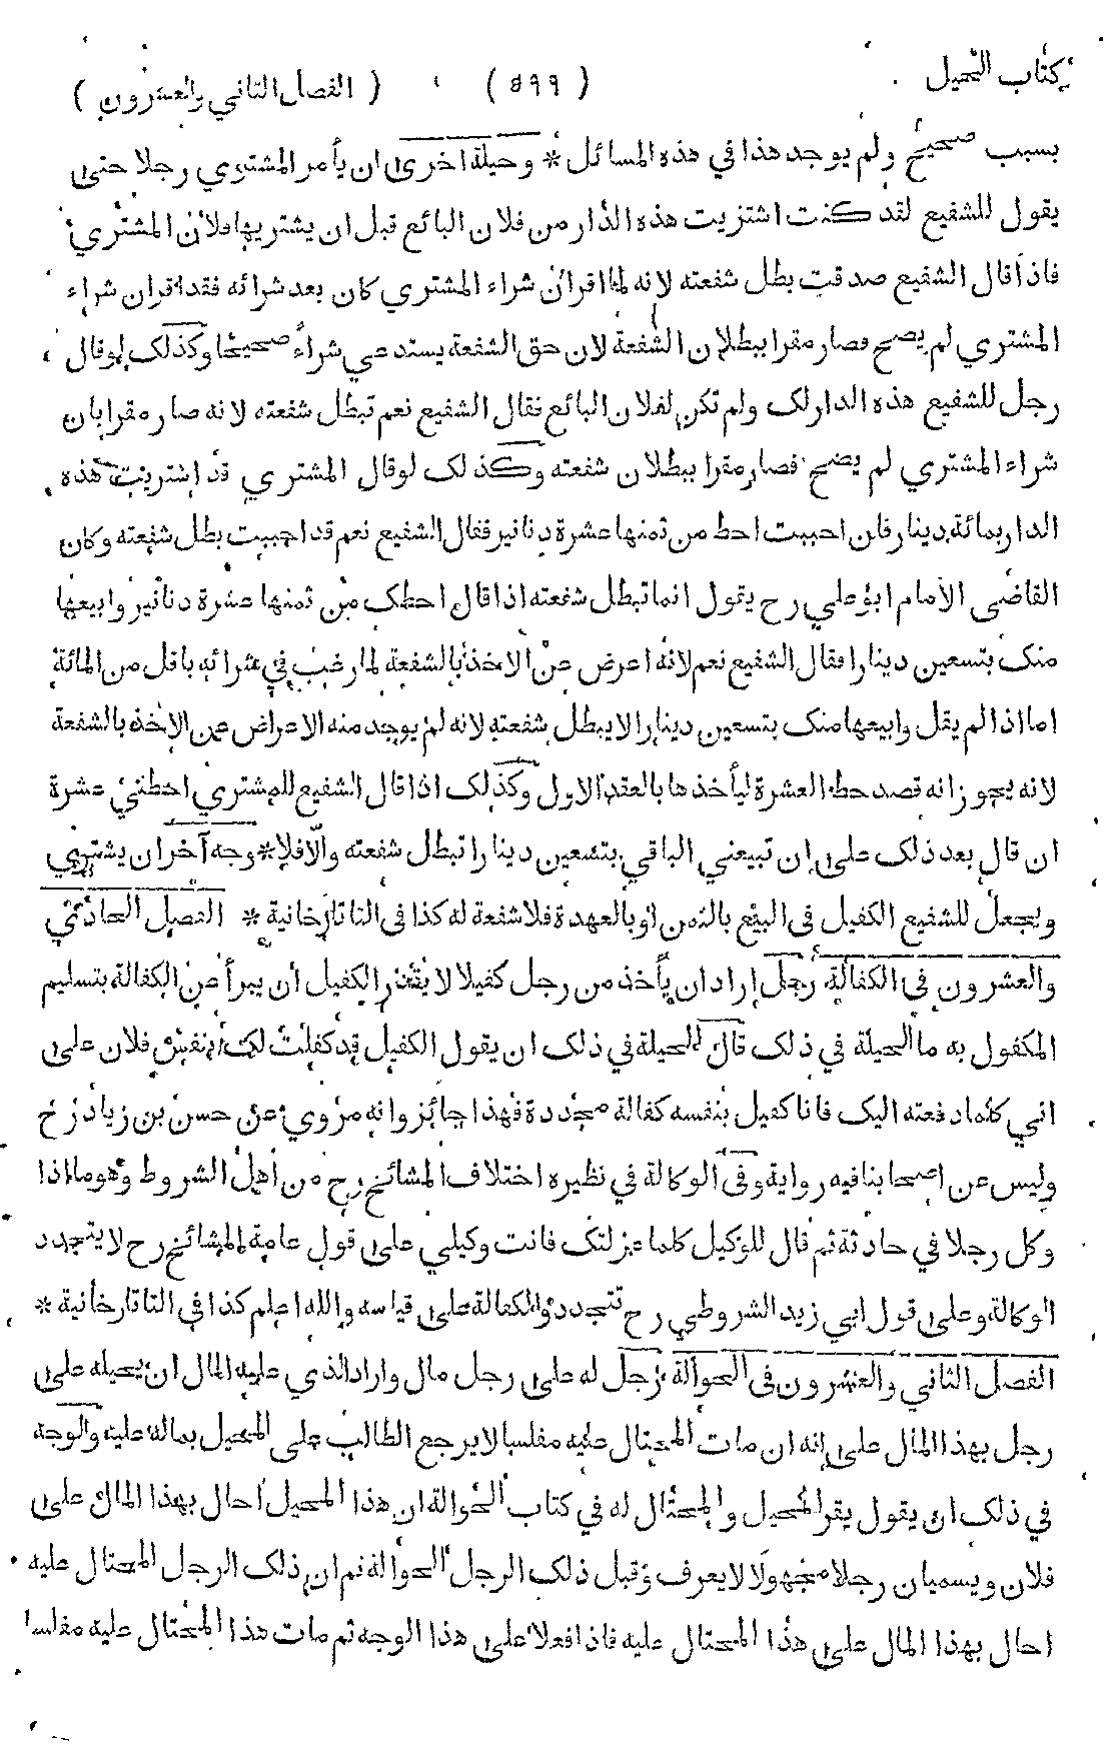 كتاب الحيل ( ٥٩٩ ) ( الفصل الثاني والعشرون )
بسبب صحيح ولم يوجد هذا في هذه المسائل * وحيلة اخرى ان يأمر المشتري رجلا حتى
يقول للشفيع لقد كنت اشتريت هذه الدار من فلان البائع قبل ان يشتريها فلان المشتري
فاذا قال الشفيع صدقت بطل شفعته لانه لما اقر ان شراء المشتري كان بعد شرائه فقد اقر ان شراء
المشتري لم يصح فصار مقرا ببطلان الشفعة لان حق الشفعة يستدعي شراءً صحيحًا وكذلك لو قال
رجل للشفيع هذه الدار لك ولم تكن لفلان البائع فقال الشفيع نعم تبطل شفعته لانه صار مقرا بان
شراء المشتري لم يصح فصار مقرا ببطلان شفعته وكذلك لو قال المشتري قد اشتريت هذه
الدار بمائة دينار فان احببت احط من ثمنها عشرة دنانير فقال الشفيع نعم قد احببت بطل شفعته وكان
القاضى الامام ابو علي رح يقول انما تبطل شفعته اذا قال احطك من ثمنها عشرة دنانير وابيعها
منك بتسعين دينارا فقال الشفيع نعم لانه اعرض عن الاخذ بالشفعة لما رغب في شرائه باقل من المائة
اما اذا لم يقل وابيعها منك بتسعين دينارا لا يبطل شفعته لانه لم يوجد منه الاعراض عن الاخذ بالشفعة
لانه يجوز انه قصد حط العشرة ليأخذها بالعقد الاول وكذلك اذا قال الشفيع للمشتري احطني عشرة
ان قال بعد ذلك على ان تبيعني الباقي بتسعين دينارا تبطل شفعته والّا فلا * وجه آخر ان يشتري
ويجعل للشفيع الكفيل فى البيع بالثمن او بالعهدة فلا شفعة له كذا فى التاتارخانية * الفصل الحادي
والعشرون في الكفالة رجل اراد ان يأخذ من رجل كفيلا لا يقدر الكفيل أن يبرأ عن الكفالة بتسليم
المكفول به ما الحيلة في ذلك قال الحيلة في ذلك ان يقول الكفيل قد كفلت لك بنفس فلان على
اني كلما دفعته اليك فانا كفيل بنفسه كفالة مجددة فهذا جائز وانه مروي عن حسن بن زياد رح
وليس عن اصحابنا فيه رواية وفى الوكالة في نظيره اختلاف المشائخ رح من أهل الشروط وهو ما اذا
وكل رجلا في حادثة ثم قال للوكيل كلما عزلتك فانت وكيلي على قول عامة المشائخ رح لا يتجدد
الوكالة وعلى قول ابي زيد الشروطي رح تتجدد والكفالة على قياسه والله اعلم كذا في التاتارخانية *
الفصل الثاني والعشرون فى الحوالة رجل له على رجل مال واراد الذي عليه المال ان يحيله على
رجل بهذا المال على انه ان مات المحتال عليه مفلسا لا يرجع الطالب على المحيل بماله عليه والوجه
في ذلك ان يقول يقر المحيل والمحتال له في كتاب الحوالة ان هذا المحيل أحال بهذا المال على
فلان ويسميان رجلا مجهولا لا يعرف وقبل ذلك الرجل الحوالة ثم ان ذلك الرجل المحتال عليه
احال بهذا المال على هذا المحتال عليه فاذا فعلا على هذا الوجه ثم مات هذا المحتال عليه مفلسا